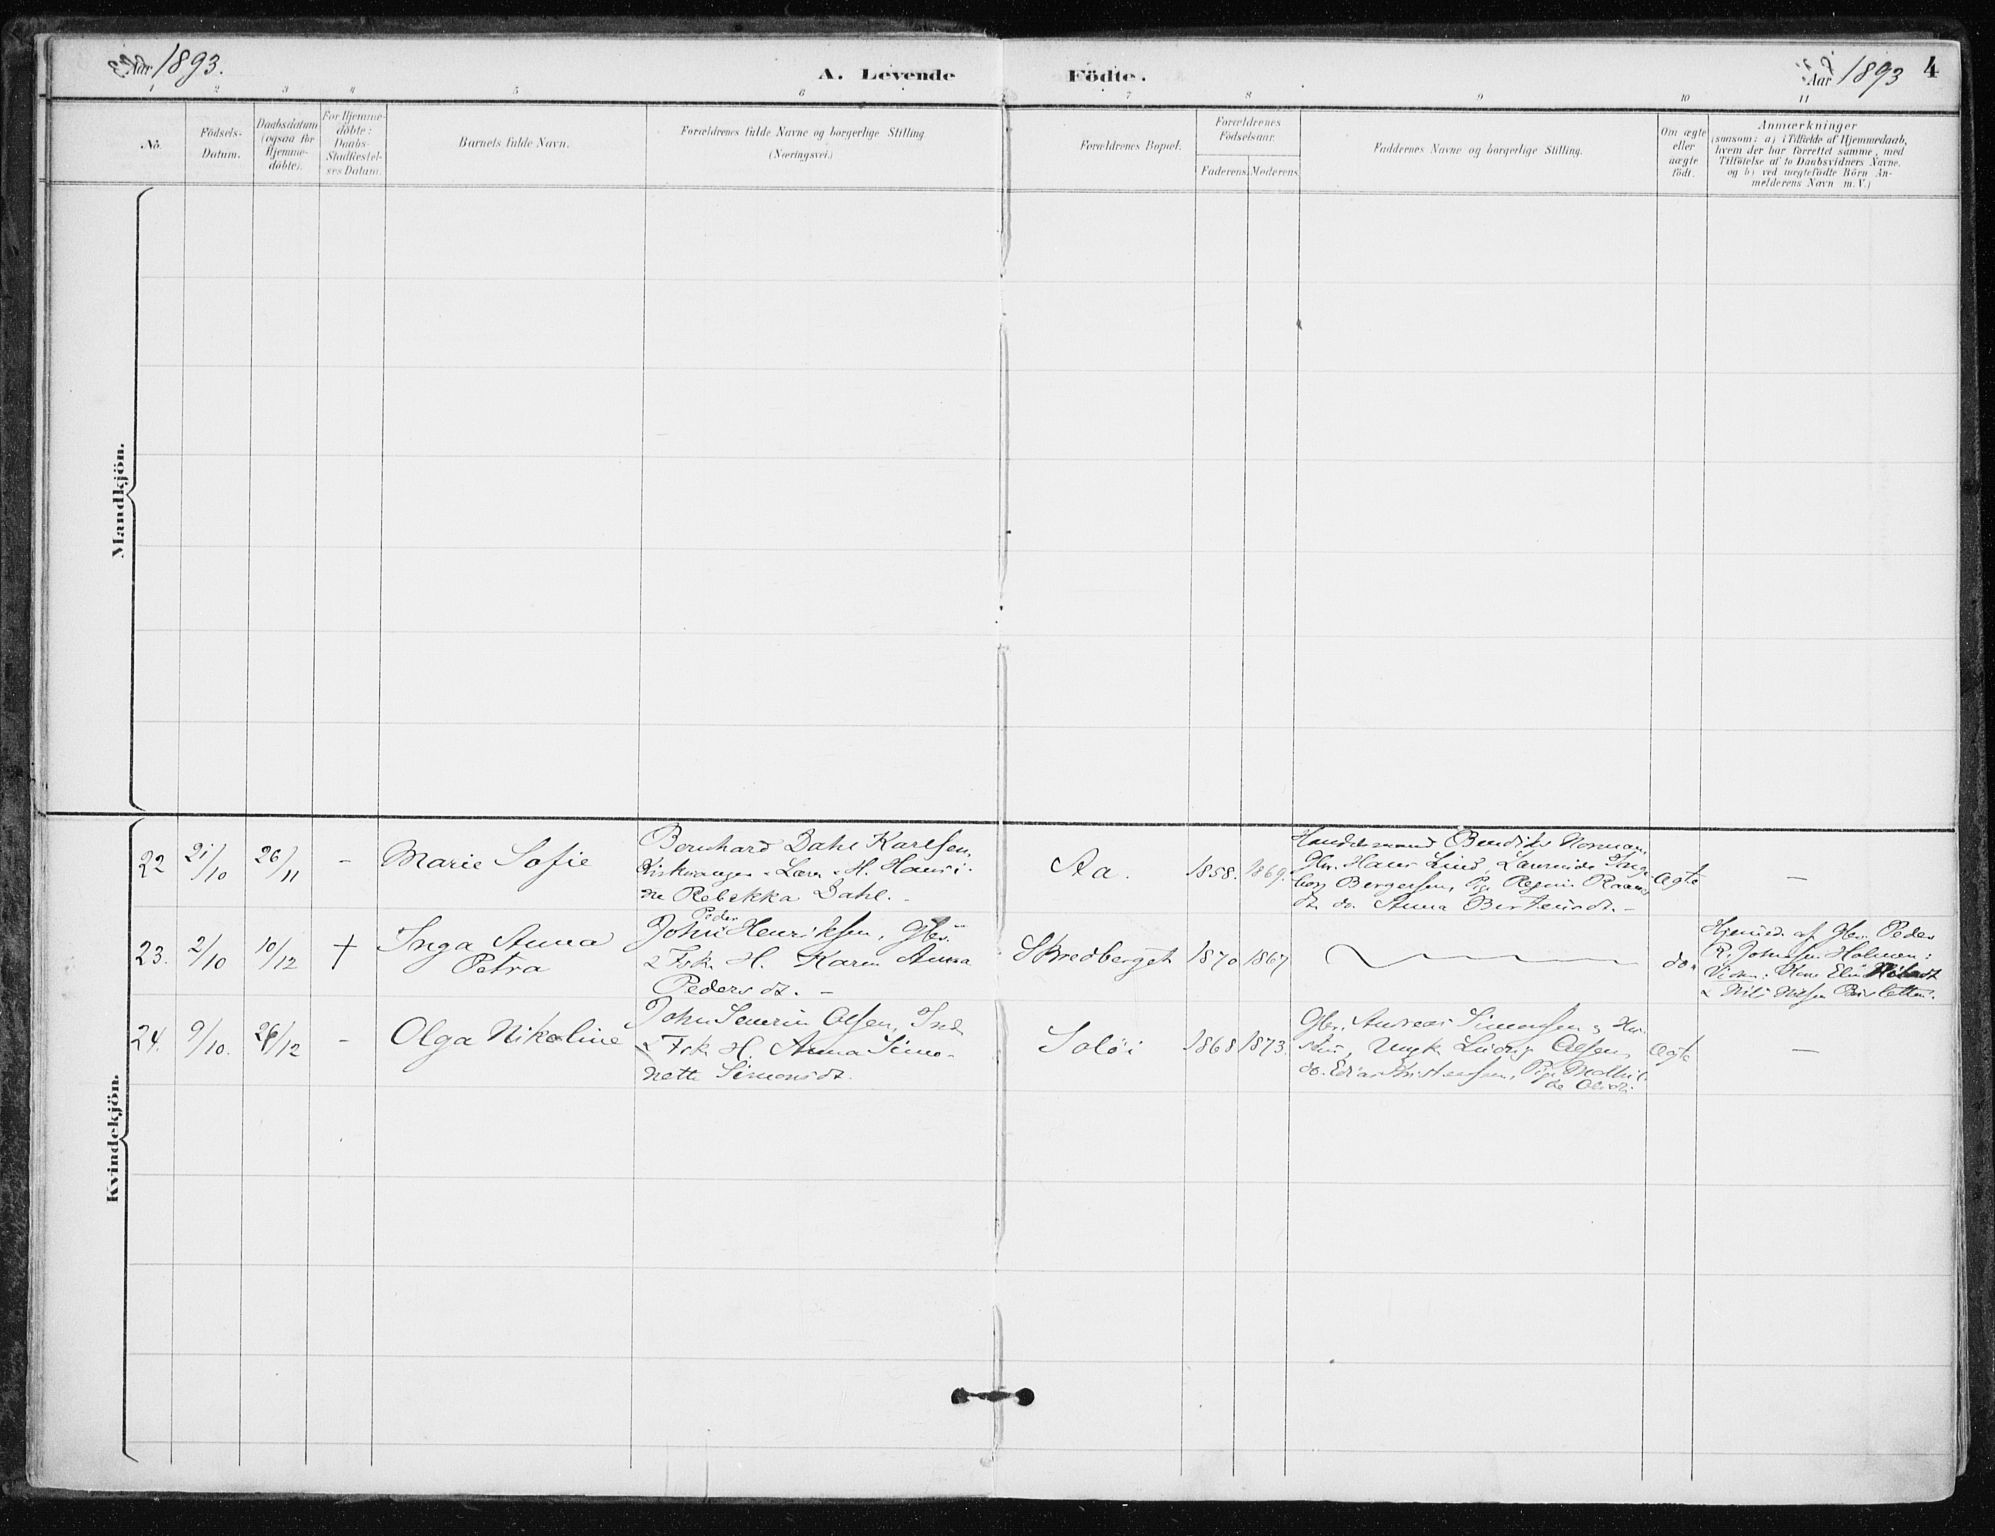 Aar 1893.
A. Levende Födte.
Aar 1893
4
1 2 3 4 5 6 7 8 9 10 11
No.
Födsels-
Datum.
Daabsdatum
(ogsaa for
Hjemme-
döbte).
For Hjemme-
döbte:
Daabs-
Stadfæstel-
ses Datum.
Barnets fulde Navn.
Forældrenes fulde Navne og borgerlige Stilling
(Næringsvei.)
Forældrenes Bopæl.
Forældrenes
Födselsaar.
Faderens. Moderens.
Faddernes Navne og borgerlige Stilling.
Om ægte
eller
uægte
födt.
Anmærkninger
(saasom: a) i Tilfælde af Hjemmedaab,
hvem der har forrettet samme, med
Tilföielse af to Daabsvidners Navne,
og b) ved uægtefödte Börn An-
melderens Navn m. V.)
Mandkjön.
Kvindekjön.
22 21/10 26/11 - Marie Sofie
Bernhard Dahl Karlsen,
Kirkesanger & Lærer & H. Hansi-
ne Rebekka Dahl. -
Aa. 1858. 1869.
Handelsmand Bendiks Norman,
Gbr. Hans Lind, Laurinda Inge-
borg Bergersen, Pige
dt. do. Anna Berteusdt. -
Ægte -
23. 2/10 10/12 + Inga Anna
Petra
Peder
John Henriksen, Gbr.
& Fsk. H. Karen Anna
Pedersdt. -
Skredberget 1870 1867
do.
Hjemmed. af Gbr. Peder
R. Johnsen Holmen:
Vidner:
& Nils Nilsen
24. 9/10. 26/12 - Olga Nikoline
John Severin Olsen, Ind.
& Fsk. H. Anna Simo-
nette Simonsdt.
Soløi 1868 1873.
Gbr. Andreas Simonsen & Hu-
stru, Ungk. Ludvig Olsen,
do. Edias Kristensen, Pige Mathil-
de Olsdt.
Ægte -